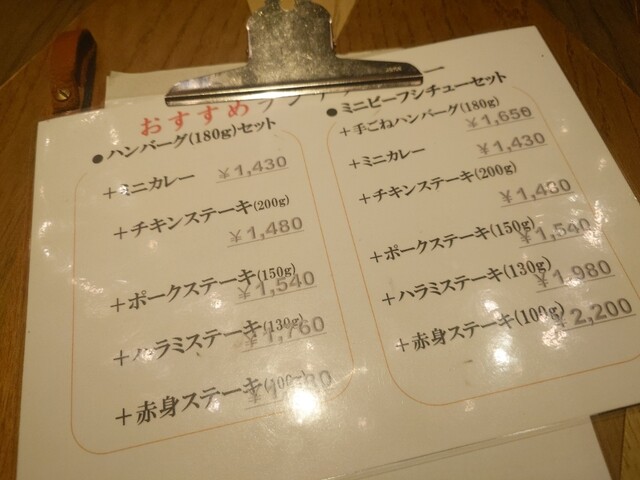 おすすめ
●ハンバーグ(180g)セット
+ミニカレー ¥1,430
+チキンステーキ(200g)
¥1,480
+ポークステーキ(150g)
¥1,540
+ハラミステーキ(130g)
¥1,760
+赤身ステーキ
●ミニビーフシチューセット
+手ごねハンバーグ(180g)
¥1,650
+ミニカレー ¥1,430
+チキンステーキ(200g)
+ポークステーキ(150g)
¥1,540
+ハラミステーキ(130g)
¥1,980
+赤身ステーキ(100g)
¥2,200